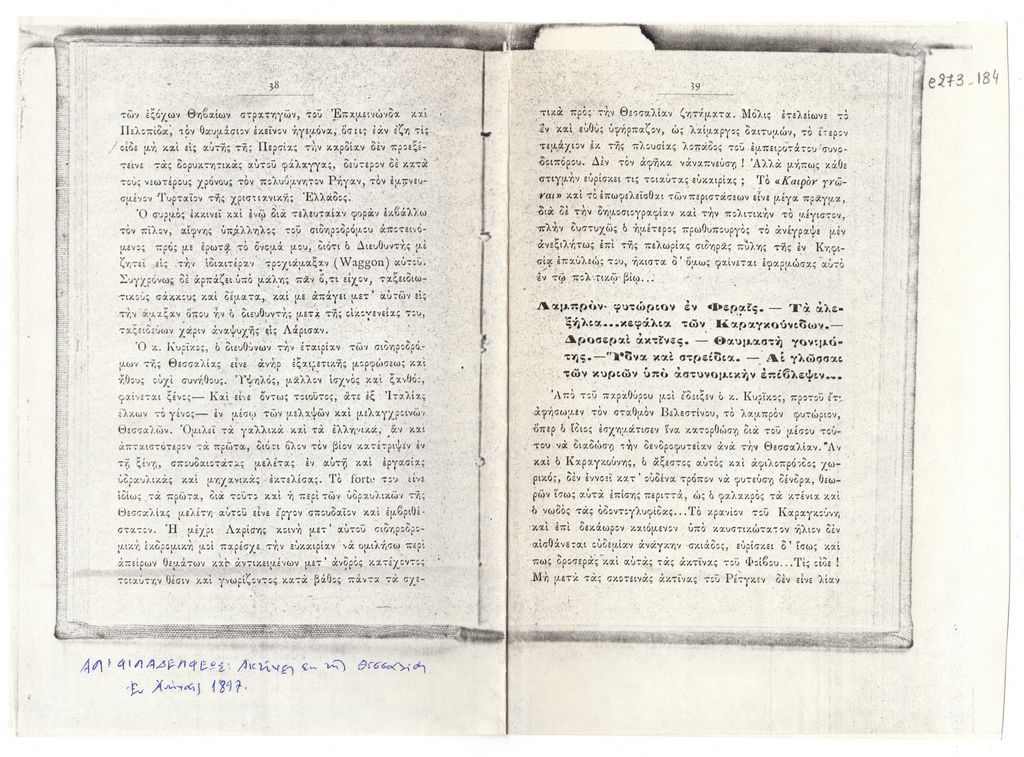 38
τῶν ἐξόχων Θηβαίων στρατηγῶν, τοῦ Ἐπαμεινώνδα καὶ
Πελοπίδα, τὸν θαυμάσιον ἐκεῖνον ἡγεμόνα, ὅστις ἐὰν ἔζη τίς
οἶδε μὴ καὶ εἰς αὐτῆς τῆς Περσίας τὴν καρδίαν δὲν προεξέ-
τεινε τὰς δορυκτητικὰς αὐτοῦ φάλαγγας, δεύτερον δὲ κατὰ
τοὺς νεωτέρους χρόνους τὸν πολυύμνητον Ρήγαν, τὸν ἐμπνευ-
σμένον Τυρταῖον τῆς χριστιανικῆς Ἑλλάδος.
Ὁ συρμὸς ἐκκινεῖ καὶ ἐνῷ διὰ τελευταίαν φορὰν ἐκβάλλω
τὸν πῖλον, αἴφνης ὑπάλληλος τοῦ σιδηροδρόμου ἀποτεινό-
μενος πρός με ἐρωτᾷ τὸ ὄνομά μου, διότι ὁ Διευθυντὴς μὲ
ζητεῖ εἰς τὴν ἰδιαιτέραν τροχιάμαξαν (Waggon) αὐτοῦ.
Συγχρόνως δὲ ἁρπάζει ὑπὸ μάλης πᾶν ὅ,τι εἶχον, ταξειδιω-
τικοὺς σάκκους καὶ δέματα, καὶ μὲ ἀπάγει μετ' αὐτῶν εἰς
τὴν ἅμαξαν ὅπου ἦν ὁ διευθυντὴς μετὰ τῆς οἰκογενείας του,
ταξειδεύων χάριν ἀναψυχῆς εἰς Λάρισαν.
Ὁ κ. Κυρῖκος, ὁ διευθύνων τὴν ἑταιρίαν τῶν σιδηροδρό-
μων τῆς Θεσσαλίας εἶνε ἀνὴρ ἐξαιρετικῆς μορφώσεως καὶ
ἤθους οὐχὶ συνήθους. Ὑψηλός, μᾶλλον ἰσχνὸς καὶ ξανθός,
φαίνεται ξένος— Καὶ εἶνε ὄντως τοιοῦτος, ἅτε ἐξ Ἰταλίας
ἕλκων τὸ γένος— ἐν μέσῳ τῶν μελαψῶν καὶ μελαγχροινῶν
Θεσσαλῶν. Ὁμιλεῖ τὰ γαλλικὰ καὶ τὰ ἑλληνικά, ἂν καὶ
ἀπταιστότερον τὰ πρῶτα, διότι ὅλον τὸν βίον κατέτριψεν ἐν
τῇ ξένῃ, σπουδαιοτάτας μελέτας ἐν αὐτῇ καὶ ἐργασίας
ὑδραυλικὰς καὶ μηχανικὰς ἐκτελέσας. Τὸ forte του εἶνε
ἰδίως τὰ πρῶτα, διὰ τοῦτο καὶ ἡ περὶ τῶν ὑδραυλικῶν τῆς
Θεσσαλίας μελέτη αὐτοῦ εἶνε ἔργον σπουδαῖον καὶ ἐμβριθέ-
στατον. Ἡ μέχρι Λαρίσης κοινὴ μετ' αὐτοῦ σιδηροδρο-
μικὴ ἐκδρομικὴ μοὶ παρέσχε τὴν εὐκαιρίαν νὰ ὁμιλήσω περὶ
ἀπείρων θεμάτων καὶ ἀντικειμένων μετ' ἀνδρὸς κατέχοντος
τοιαύτην θέσιν καὶ γνωρίζοντος κατὰ βάθος πάντα τὰ σχε-
ΑΛ: ΦΙΛΑΔΕΛΦΕΩΣ: Ακτίνες ἐκ τῆς Θεσσαλίας
Ἐν Ἀθήναις 1897.
e273_184
39
τικὰ πρὸς τὴν Θεσσαλίαν ζητήματα. Μόλις ἐτελείωνε τὸ
ἓν καὶ εὐθὺς ὑφήρπαζον, ὡς λαίμαργος δαιτυμών, τὸ ἕτερον
τεμάχιον ἐκ τῆς πλουσίας λοπάδος τοῦ ἐμπειροτάτου συνο-
δοιπόρου. Δὲν τὸν ἀφῆκα νἀναπνεύσῃ! Ἀλλὰ μήπως κάθε
στιγμὴν εὑρίσκει τις τοιαύτας εὐκαιρίας; Τὸ «Καιρὸν γνῶ-
ναι» καὶ τὸ ἐπωφελεῖσθαι τῶν περιστάσεων εἶνε μέγα πρᾶγμα,
διὰ δὲ τὴν δημοσιογραφίαν καὶ τὴν πολιτικὴν τὸ μέγιστον,
πλὴν δυστυχῶς ὁ ἡμέτερος πρωθυπουργὸς τὸ ἀνέγραψε μὲν
ἀνεξιλήτως ἐπὶ τῆς πελωρίας σιδηρᾶς πύλης τῆς ἐν Κηφι-
σίᾳ ἐπαύλεώς του, ἥκιστα δ' ὅμως φαίνεται ἐφαρμόσας αὐτὸ
ἐν τῷ πολιτικῷ βίῳ...
Λαμπρὸν φυτώριον ἐν Φεραῖς. — Τὰ ἀλε-
ξήλια...κεφάλια τῶν Καραγκούνιδων.—
Δροσεραὶ ἀκτῖνες. — Θαυμαστὴ γονιμό-
της.—Ὕδνα καὶ στρείδια. — Αἱ γλῶσσαι
τῶν κυριῶν ὑπὸ ἀστυνομικὴν ἐπίβλεψιν...
Ἀπὸ τοῦ παραθύρου μοὶ ἔδειξεν ὁ κ. Κυρῖκος, προτοῦ ἔτι
ἀφήσωμεν τὸν σταθμὸν Βελεστίνου, τὸ λαμπρὸν φυτώριον,
ὅπερ ὁ ἴδιος ἐσχημάτισεν ἵνα κατορθώσῃ διὰ τοῦ μέσου τού-
του νὰ διαδώσῃ τὴν δενδροφυτείαν ἀνὰ τὴν Θεσσαλίαν. Ἂν
καὶ ὁ Καραγκούνης, ὁ ἄξεστος αὐτὸς καὶ ἀφιλοπρόοδος χω-
ρικός, δὲν ἐννοεῖ κατ' οὐδένα τρόπον νὰ φυτεύσῃ δένδρα, θεω-
ρῶν ἴσως αὐτὰ ἐπίσης περιττά, ὡς ὁ φαλακρὸς τὰ κτένια καὶ
ὁ νωδὸς τὰς ὀδοντογλυφίδας...Τὸ κρανίον τοῦ Καραγκούνη
καὶ ἐπὶ δεκάωρον καιόμενον ὑπὸ καυστικώτατον ἥλιον δὲν
αἰσθάνεται οὐδεμίαν ἀνάγκην σκιάδος, εὑρίσκει δ' ἴσως καί
πως δροσερὰς καὶ αὐτὰς τὰς ἀκτῖνας τοῦ Φοίβου...Τίς οἶδε!
Μὴ μετὰ τὰς σκοτεινὰς ἀκτῖνας τοῦ Ρέτγκεν δὲν εἶνε λίαν